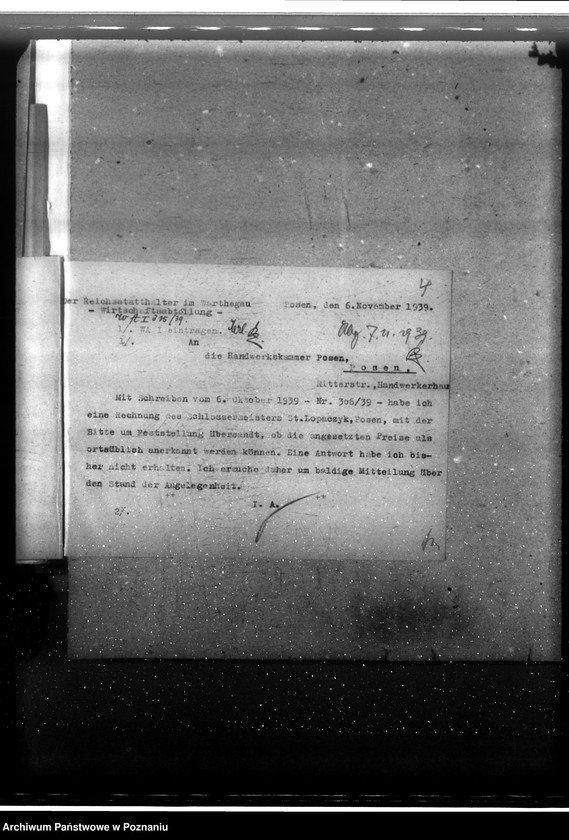 4
Der Reichsstatthalter im Warthegau Posen, den 6.November 1939.
- Wirtschaftsabteilung -
1/. WA I eintragen.
An
die Handwerkskammer Posen,
Posen,
Ritterstr.,Handwerkerhau
Mit Schreiben vom 6. Oktober 1939 - Nr. 306/39 - habe ich
eine Rechnung des Schlossermeisters St.Lopaczyk,Posen, mit der
Bitte um Feststellung übersandt, ob die angesetzten Preise als
ortsüblich anerkannt werden können. Eine Antwort habe ich bis-
her nicht erhalten. Ich ersuche daher um baldige Mitteilung über
den Stand der Angelegenheit.
I. A.
2/.
Archiwum Państwowe w Poznaniu